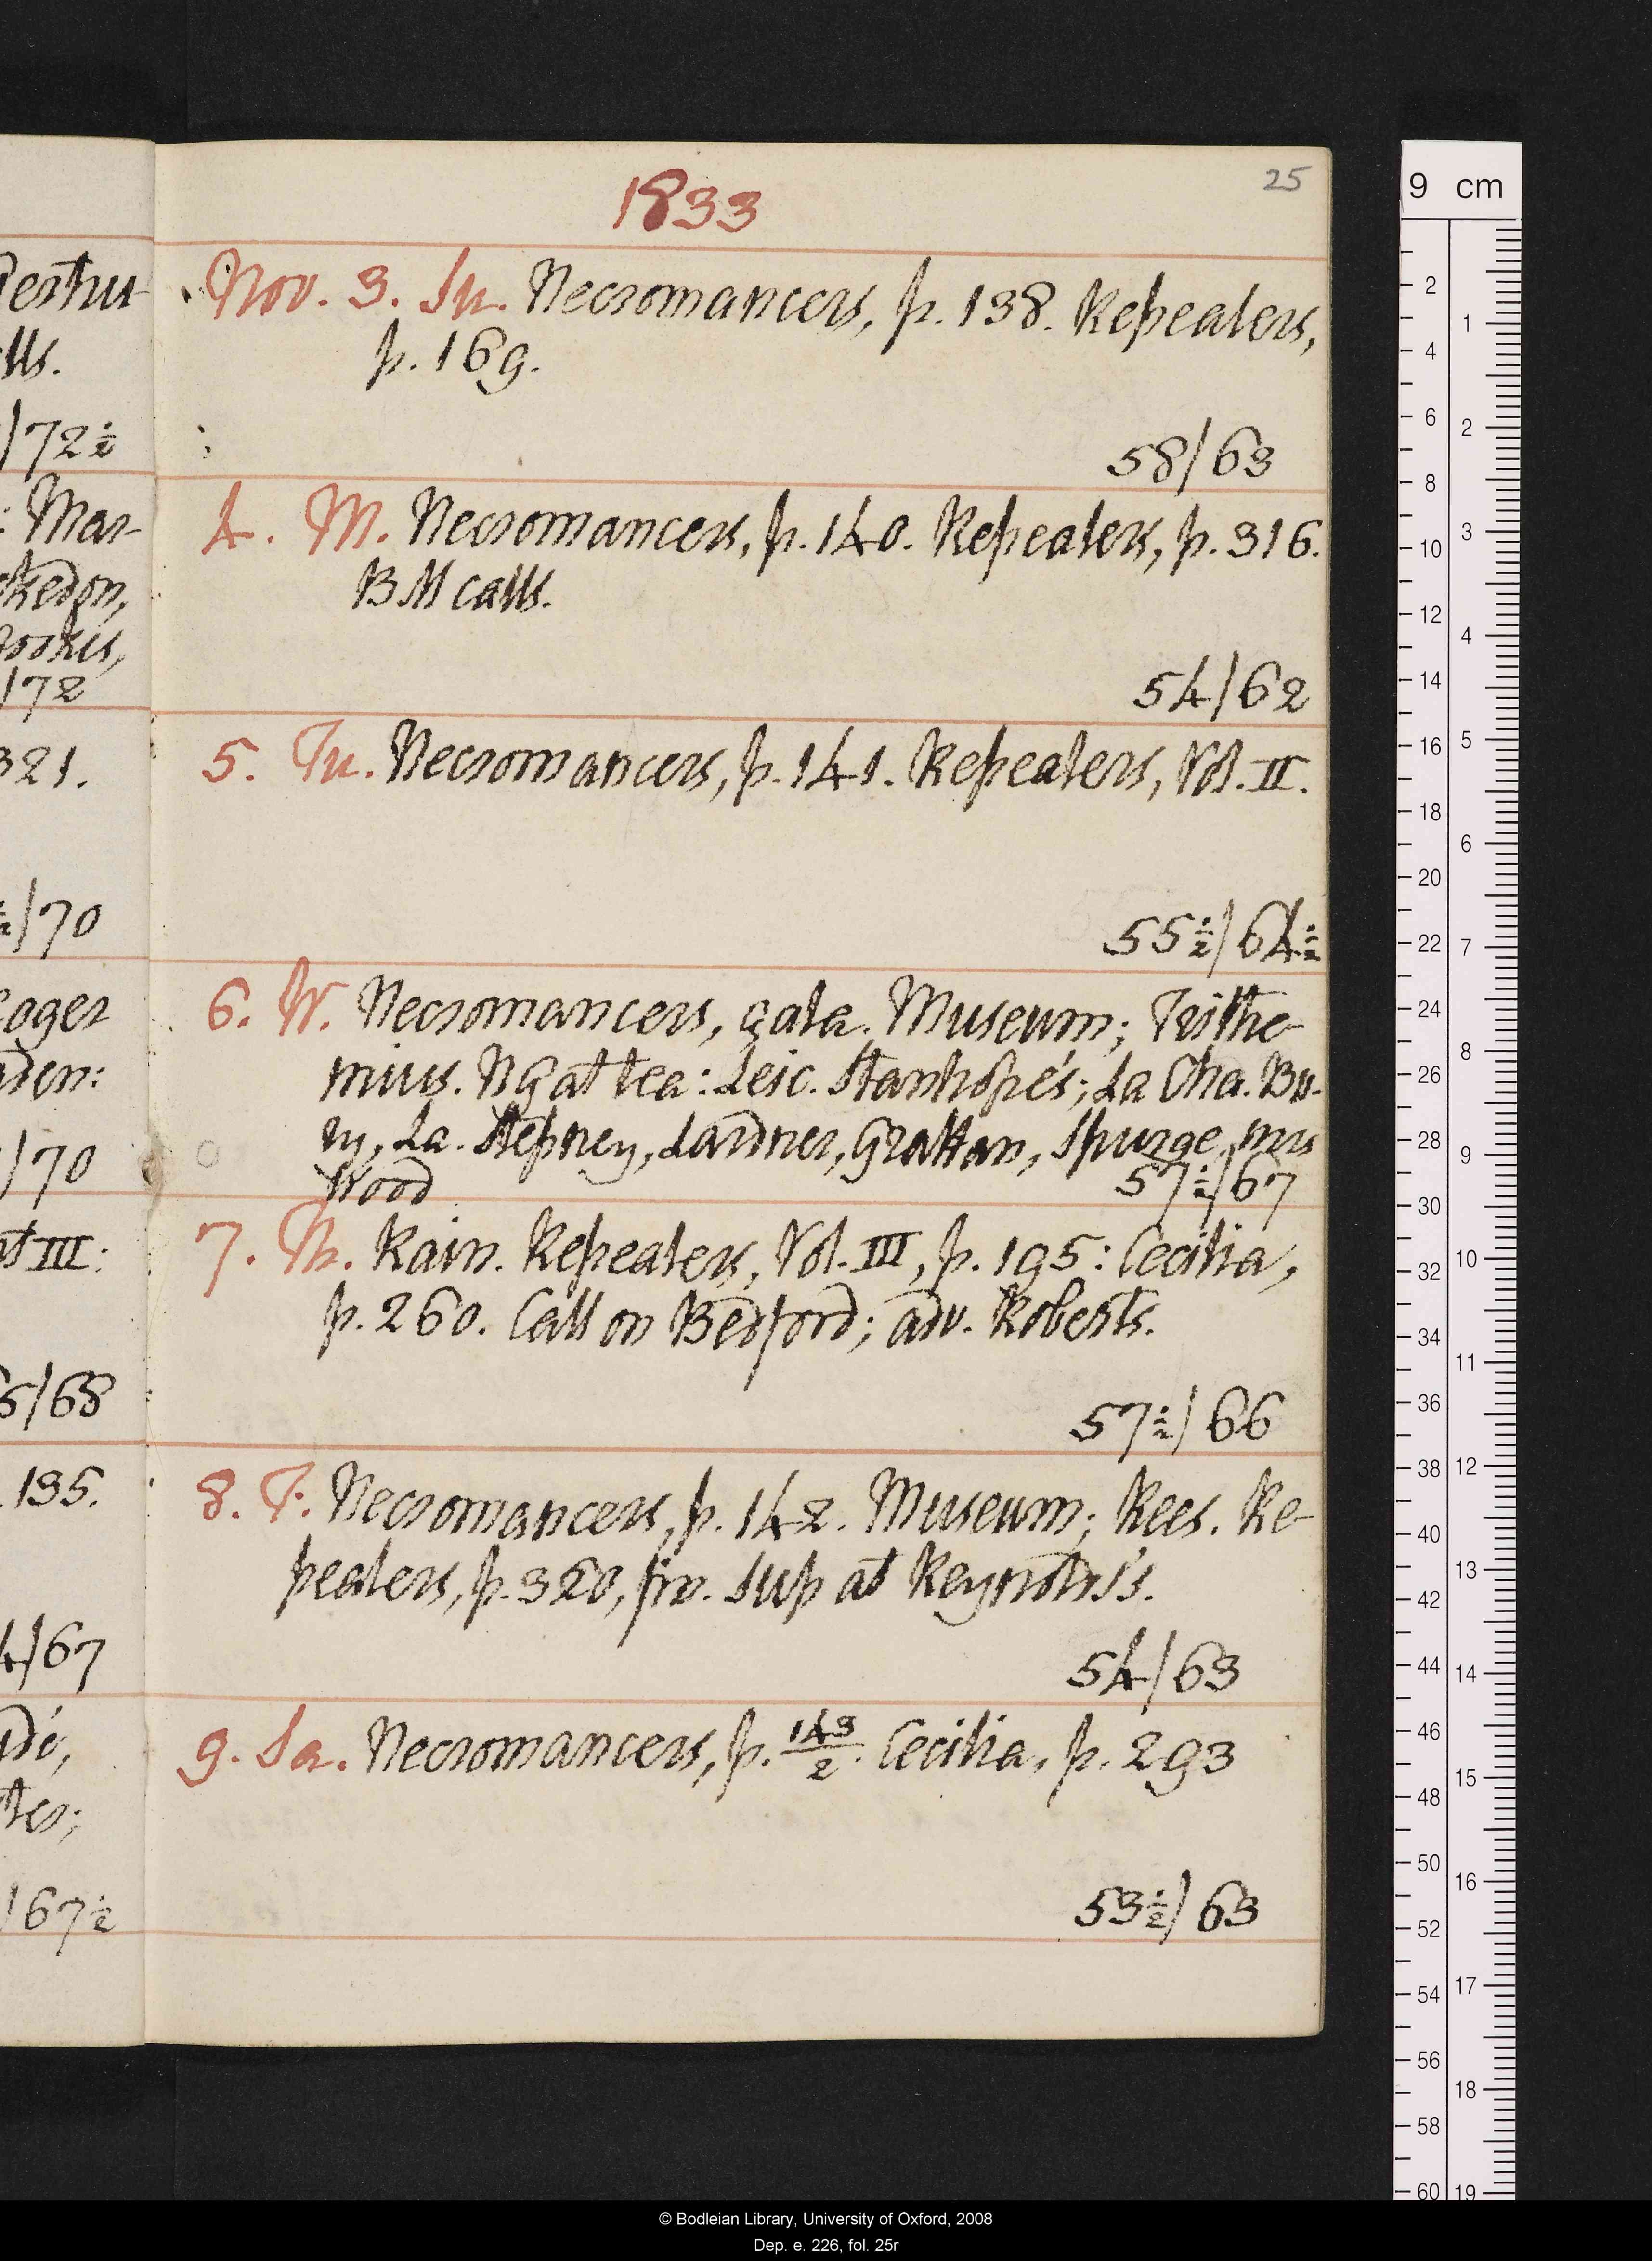 25
1833
Nov. 3. Su. Necromancers, p. 138. Repealers,
p. 169.
58/63
4. M. Necromancers, p. 140. Repealers, p. 316.
BM calls.
54/62
5. Tu. Necromancers, p. 141. Repealers, Vol. II.
55½/64½
6. W. Necromancers, gala. Museum; Trithe-
mius. NG at tea: Leic. Stanhope's; La Cha. Bu-
ry, La. Stepney, Lardner, Grattan, Spurge, mrs
Wood
57½/67
7. Th. Rain. Repealers, Vol. III, p. 195: Cecilia,
p. 260. Call on Bedford; adv. Roberts.
57½/66
8. F. Necromancers, p. 142. Museum; Rees. Re-
pealers, p. 320, fin. Sup at Reynolds's.
54/63
9. Sa. Necromancers, p. 143/2. Cecilia, p. 293
53½/63
lls.
/72½
: Mar-
/72
321.
/70
/70
III:
/68
135.
/67
/67½
9 cm
2
4
6
8
10
12
14
16
18
20
22
24
26
28
30
32
34
36
38
40
42
44
46
48
50
52
54
56
58
60
1
2
3
4
5
6
7
8
9
10
11
12
13
14
15
16
17
18
19
© Bodleian Library, University of Oxford, 2008
Dep. e. 226, fol. 25r